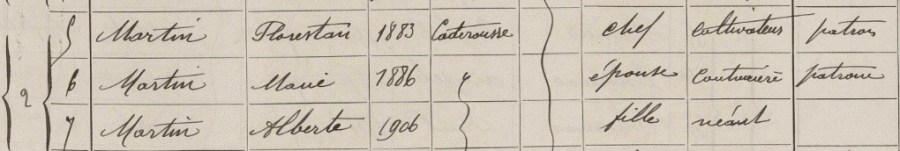 5 Martin Florestan 1883 Caderousse chef cultivateur patron
2 6 Martin Marie 1886 " épouse Couturière patronne
7 Martin Alberte 1906 fille néant